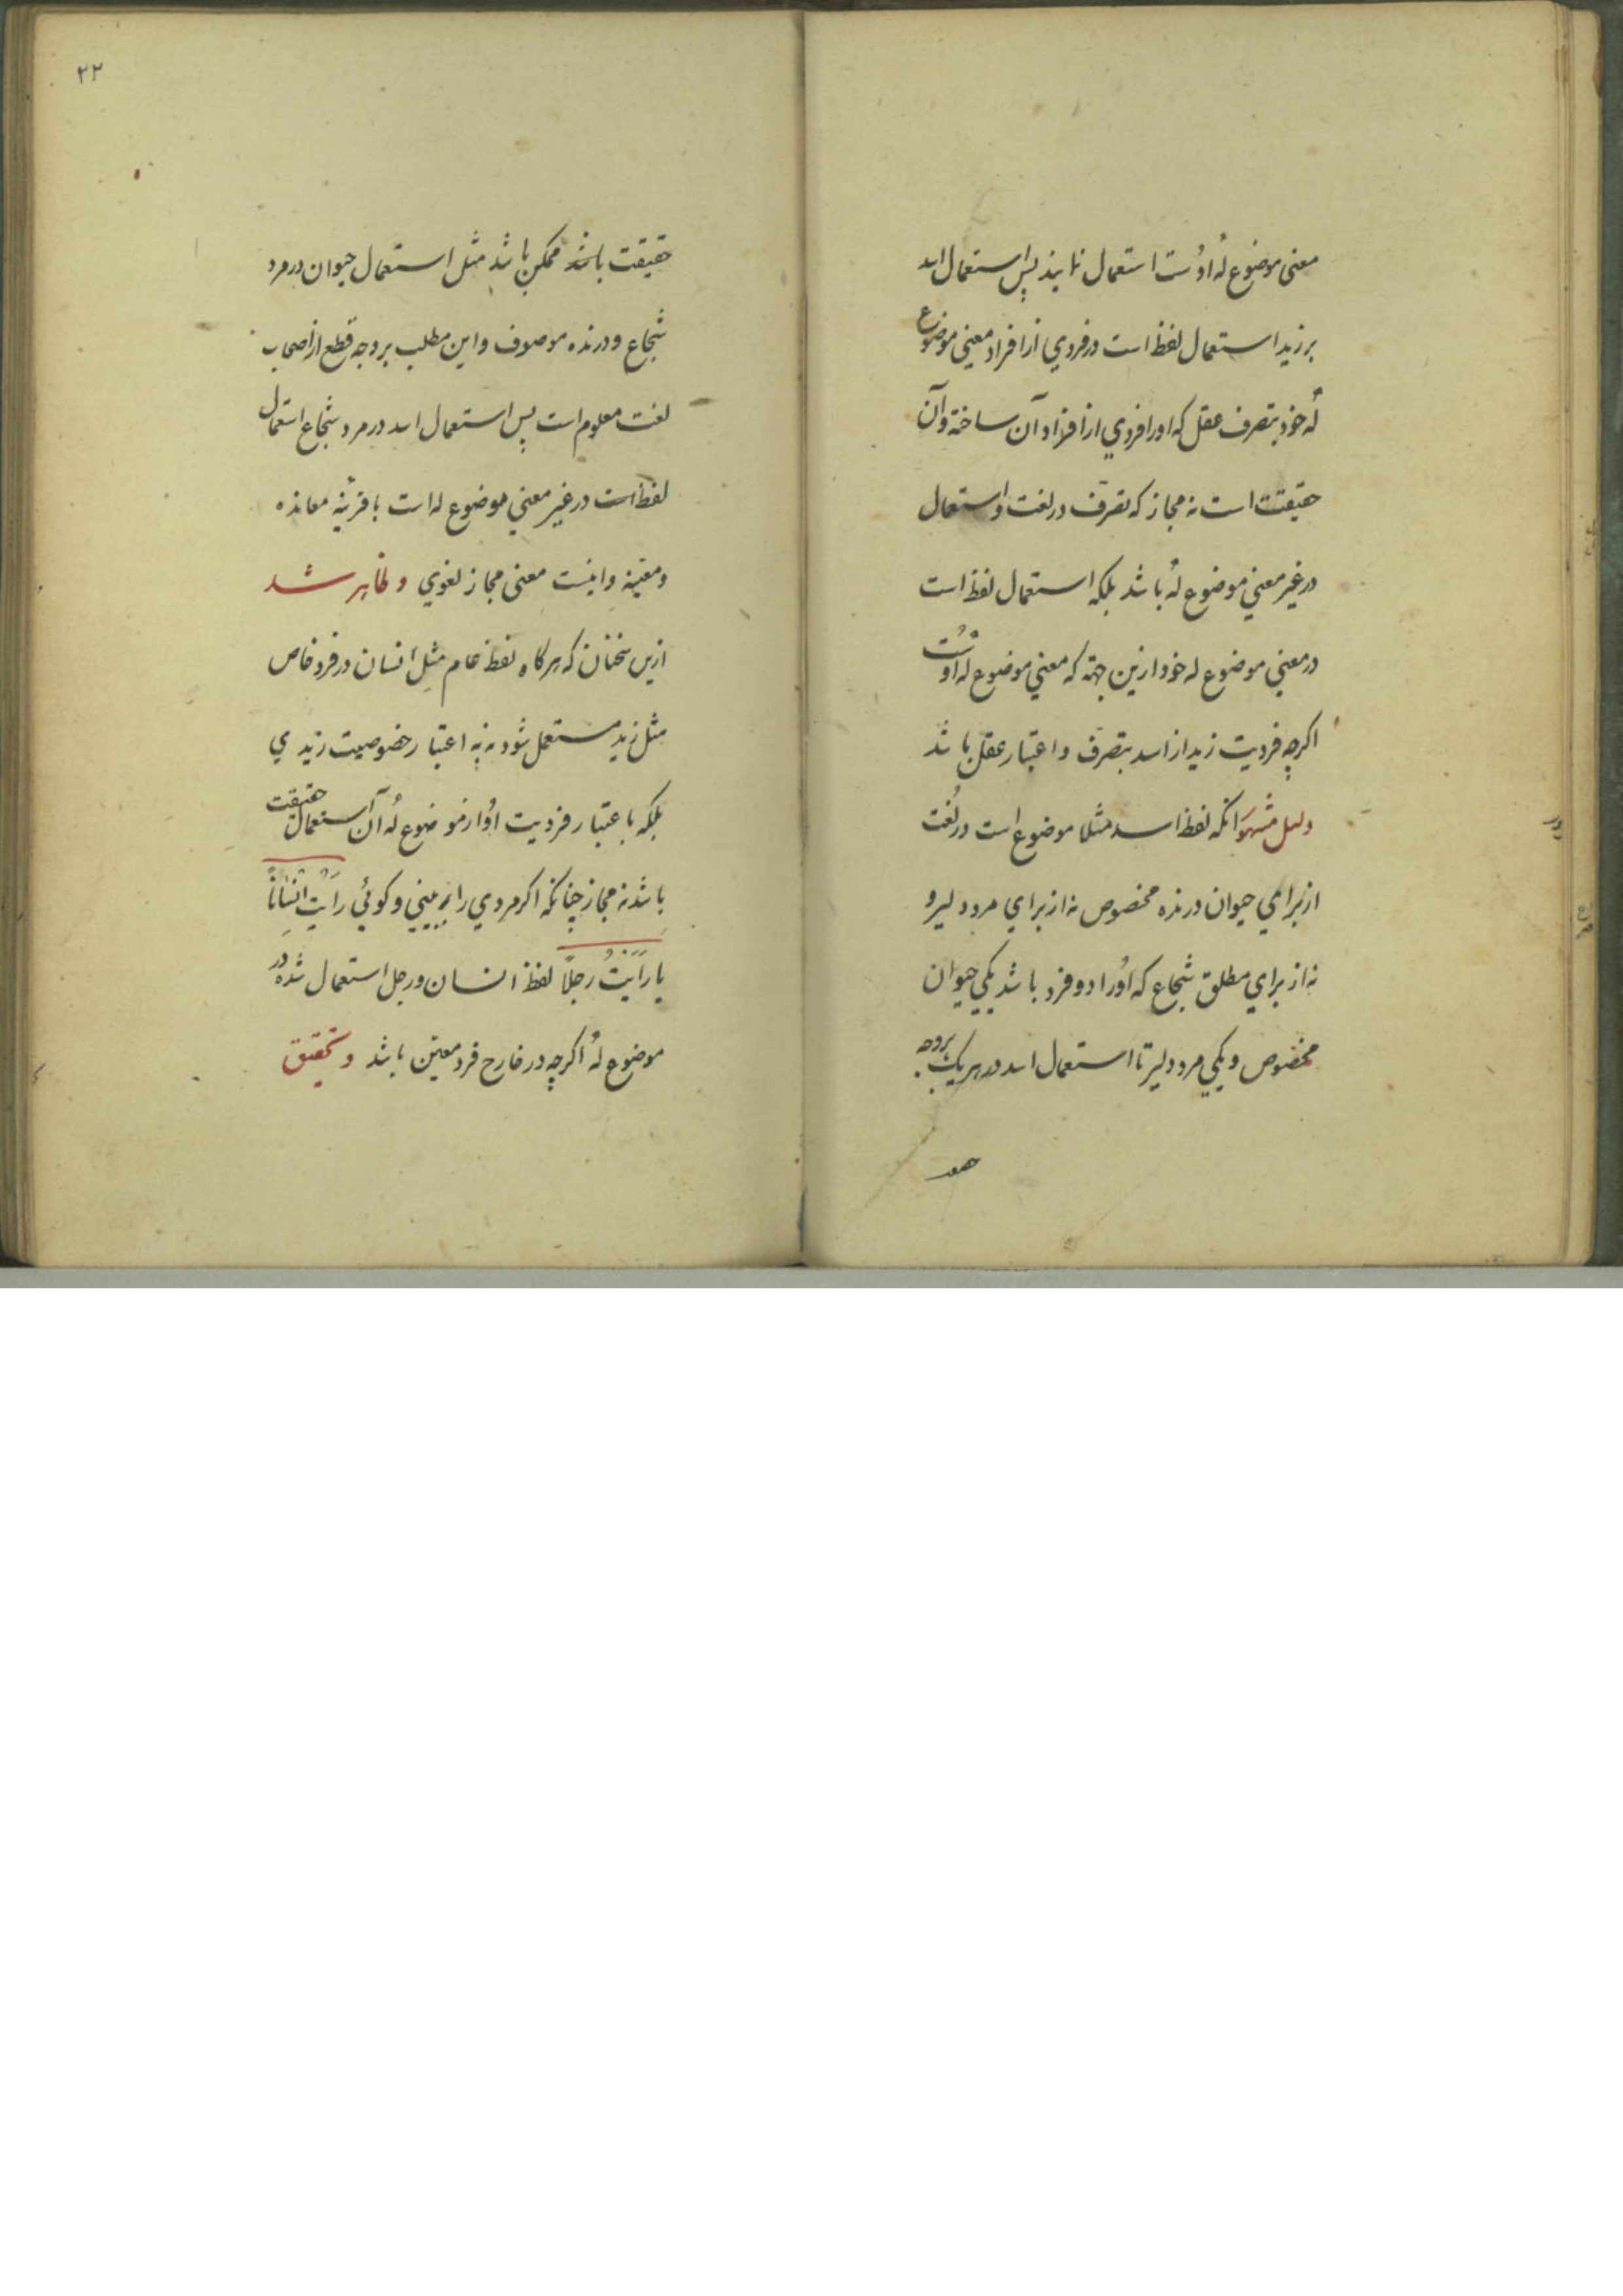 معنی موضوع لهٔ اوست استعمال نمایند پس استعمال اسد
بر زید استعمال لفظ است در فردی از افراد معنی موضوع
لهٔ خود بتصرف عقل که اورا فردی از افراد آن ساخته و آن
حقیقت است نه مجاز که تصرف در لغت و استعمال
در غیر معنی موضوع لهٔ باشد بلکه استعمال لفظ است
در معنی موضوع له خود ازین جهة که معنی موضوع له اوست
اکرچه فردیت زید از اسد بتصرف و اعتبار عقل باشد
دلیل مشهور آنکه لفظ اسد مثلا موضوع است در لغت
از برای حیوان درنده مخصوص نه از برای مرد دلیر و
نه از برای مطلق شجاع که اورا دو فرد باشد یکی حیوان
مخصوص و یکی مرد دلیر تا استعمال اسد در هریک بروجه
۲۲
حقیقت باشد ممکن باشد مثل استعمال حیوان در مرد
شجاع و درنده موصوف و این مطلب بر وجه قطع از اصحاب
لغت معلوم است پس استعمال اسد در مرد شجاع استعمال
لفظ است در غیر معنی موضوع له است با قرینه معانده
و معینه و اینست معنی مجاز لغوی و ظاهر شد
ازین سخنان که هرکاه لفظ عام مثل انسان در فرد خاص
مثل زید مستعمل شود نه به اعتبار خصوصیت زیدی
بلکه باعتبار فردیت او از موضوع لهٔ آن استعمال حقیقت
باشد نه مجاز چنانکه اکر مردی را به بینی و کوئی رأیت انسانًا
یا رأیتُ رجلًا لفظ انسان و رجل استعمال شده در
موضوع لهٔ اکرچه در خارج فرد معین باشد و تحقیق